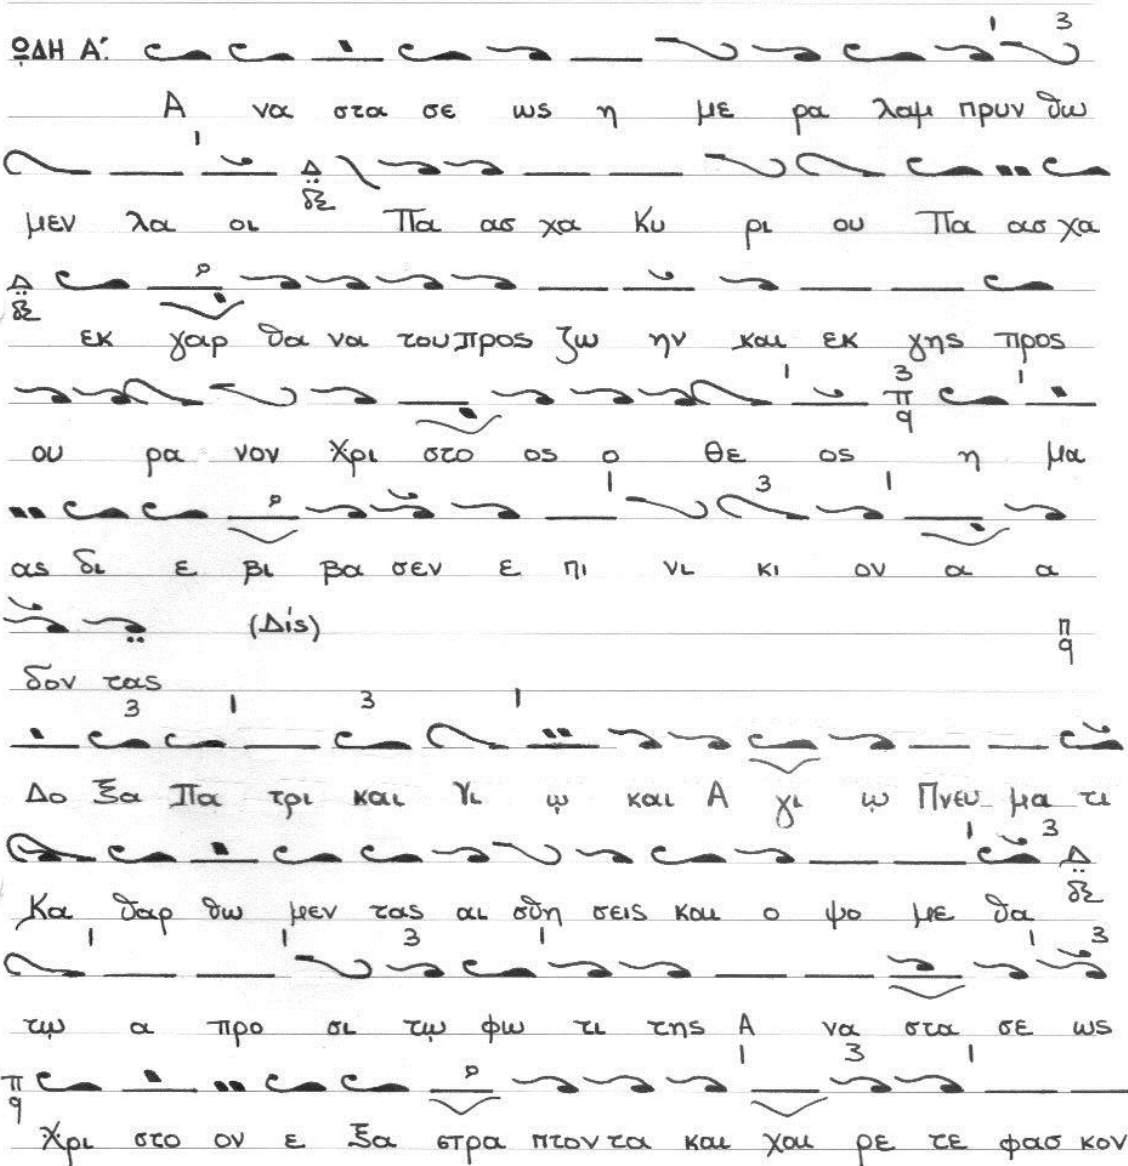 ΩΔΗ Α΄. 1 3
Α να στα σε ως η με ρα λαμ πρυν θω
1 Δ
μεν λα οι Πα ασ χα Κυ ρι ου Πα ασ χα
Δ
εκ γαρ θα να του προς ζω ην και εκ γης προς
1 3 π q 1
ου ρα νον Χρι στο ος ο Θε ος η μα
1 3 1
ας δι ε βι βα σεν ε πι νι κι ον α α
(Δίς) π q
δον τας
3 1 3 1
Δο ξα Πα τρι και Υι ω και Α γι ω Πνευ μα τι
1 3 Δ
Κα θαρ θω μεν τας αι σθη σεις και ο ψο με θα
1 1 3 1 1 3
τῳ α προ σι τῳ φω τι της Α να στα σε ως
π q 1 3 1
Χρι στο ον ε ξα στρα πτον τα και χαι ρε τε φασ κον